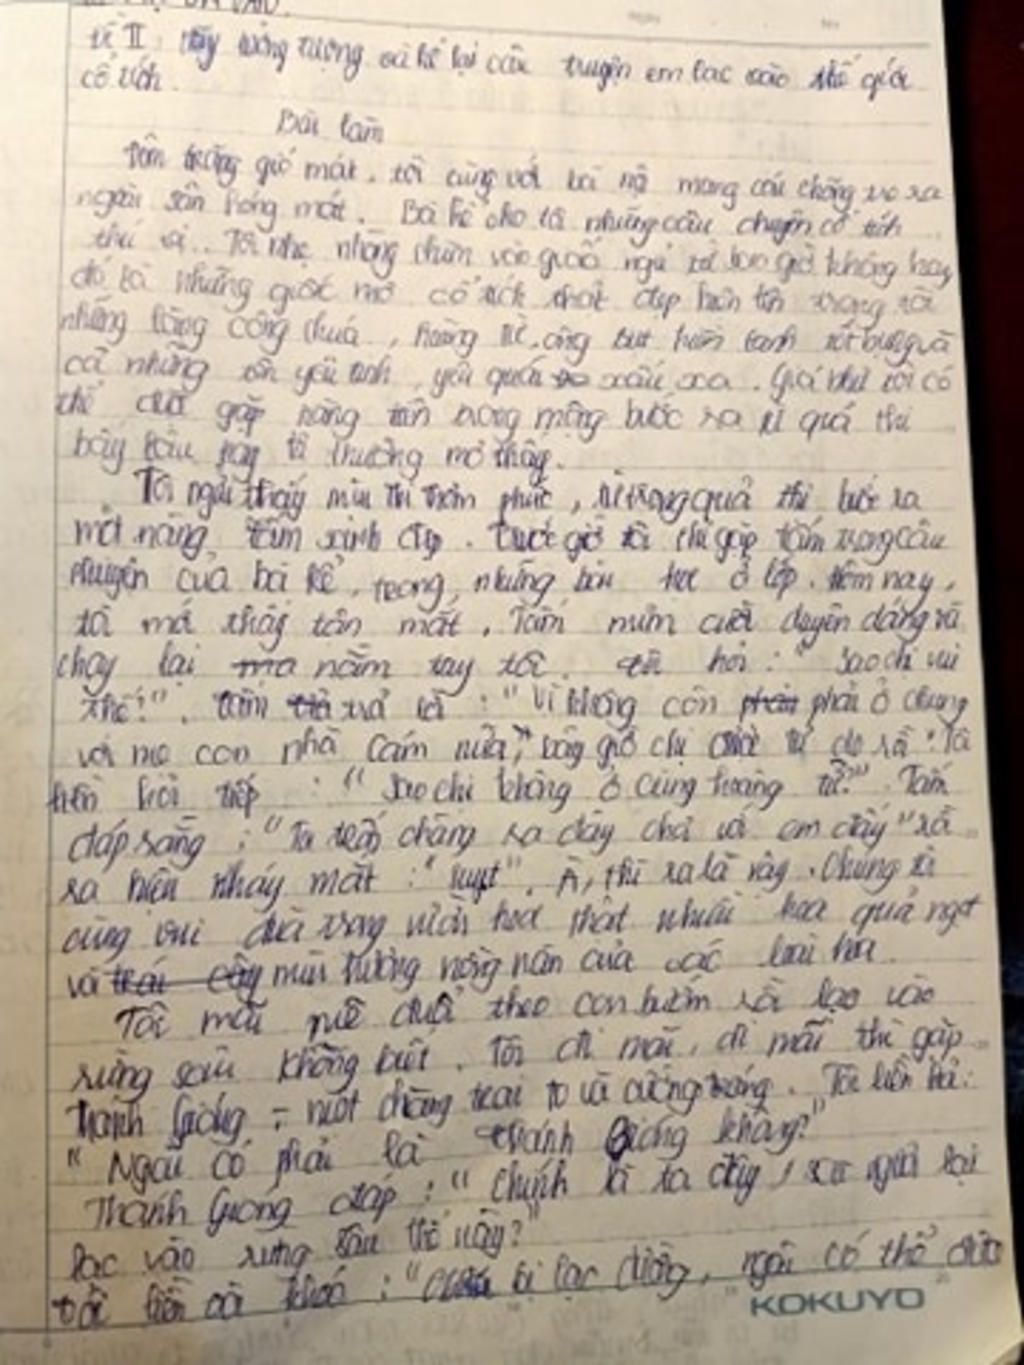 Đề II: Hãy tưởng tượng và kể lại câu truyện em lạc vào thế giới
cổ tích.
Bài làm
Đêm trăng gió mát, tôi cùng với bà nội mang cái chõng tre ra
ngoài sân hóng mát. Bà kể cho tôi những câu chuyện cổ tích
thú vị.. Tôi nhẹ nhàng chìm vào giấc ngủ từ bao giờ không hay
đó là những giấc mơ cổ tích thật đẹp hiện lên trong tôi
những nàng công chúa, hoàng tử, ông bụt hiền lành tốt bụng và
cả những tên yêu tinh, yêu quái xấu xa. Giá như tôi có
thể được gặp nàng tấm trong mộng bước ra từ quả thị
bấy lâu nay tôi thường mơ thấy.
Tôi ngửi thấy mùi thị thơm phức, từ trong quả thị bước ra
một nàng tấm xinh đẹp. Trước giờ tôi chỉ gặp Tấm trong câu
chuyện của bà kể, trong những bài học ở lớp. Hôm nay,
tôi mới thấy tận mắt. Tấm mỉm cười duyên dáng và
chạy lại nắm tay tôi. hỏi: "Sao chị vui
thế?". Tấm trả lời: "Vì không còn phải ở chung
với mẹ con nhà Cám nữa, bây giờ chị được tự do rồi". Tôi
liền hỏi tiếp: "Sao chị không ở cùng hoàng tử?". Tấm
đáp rằng: "Ta trốn chàng ra đây chơi với em đấy" rồi
ra hiệu nháy mắt: "suỵt". À, thì ra là vậy. Chúng tôi
cùng vui đùa trong vườn hoa thật nhiều hoa quả ngọt
và mùi hương nồng nàn của các loài hoa.
Tôi mải mê đuổi theo con bướm rồi lạc vào
rừng sâu không biết. Tôi đi mãi, đi mãi thì gặp
Thánh Gióng - một chàng trai to và cường tráng. Tôi liền hỏi:
"Ngài có phải là thánh Gióng không?"
Thánh Gióng đáp: "Chính là ta đây, sao ngươi lại
lạc vào rừng sâu thế này?"
Tôi liền oà khóc: "Cháu bị lạc đường, ngài có thể đưa
KOKUYO